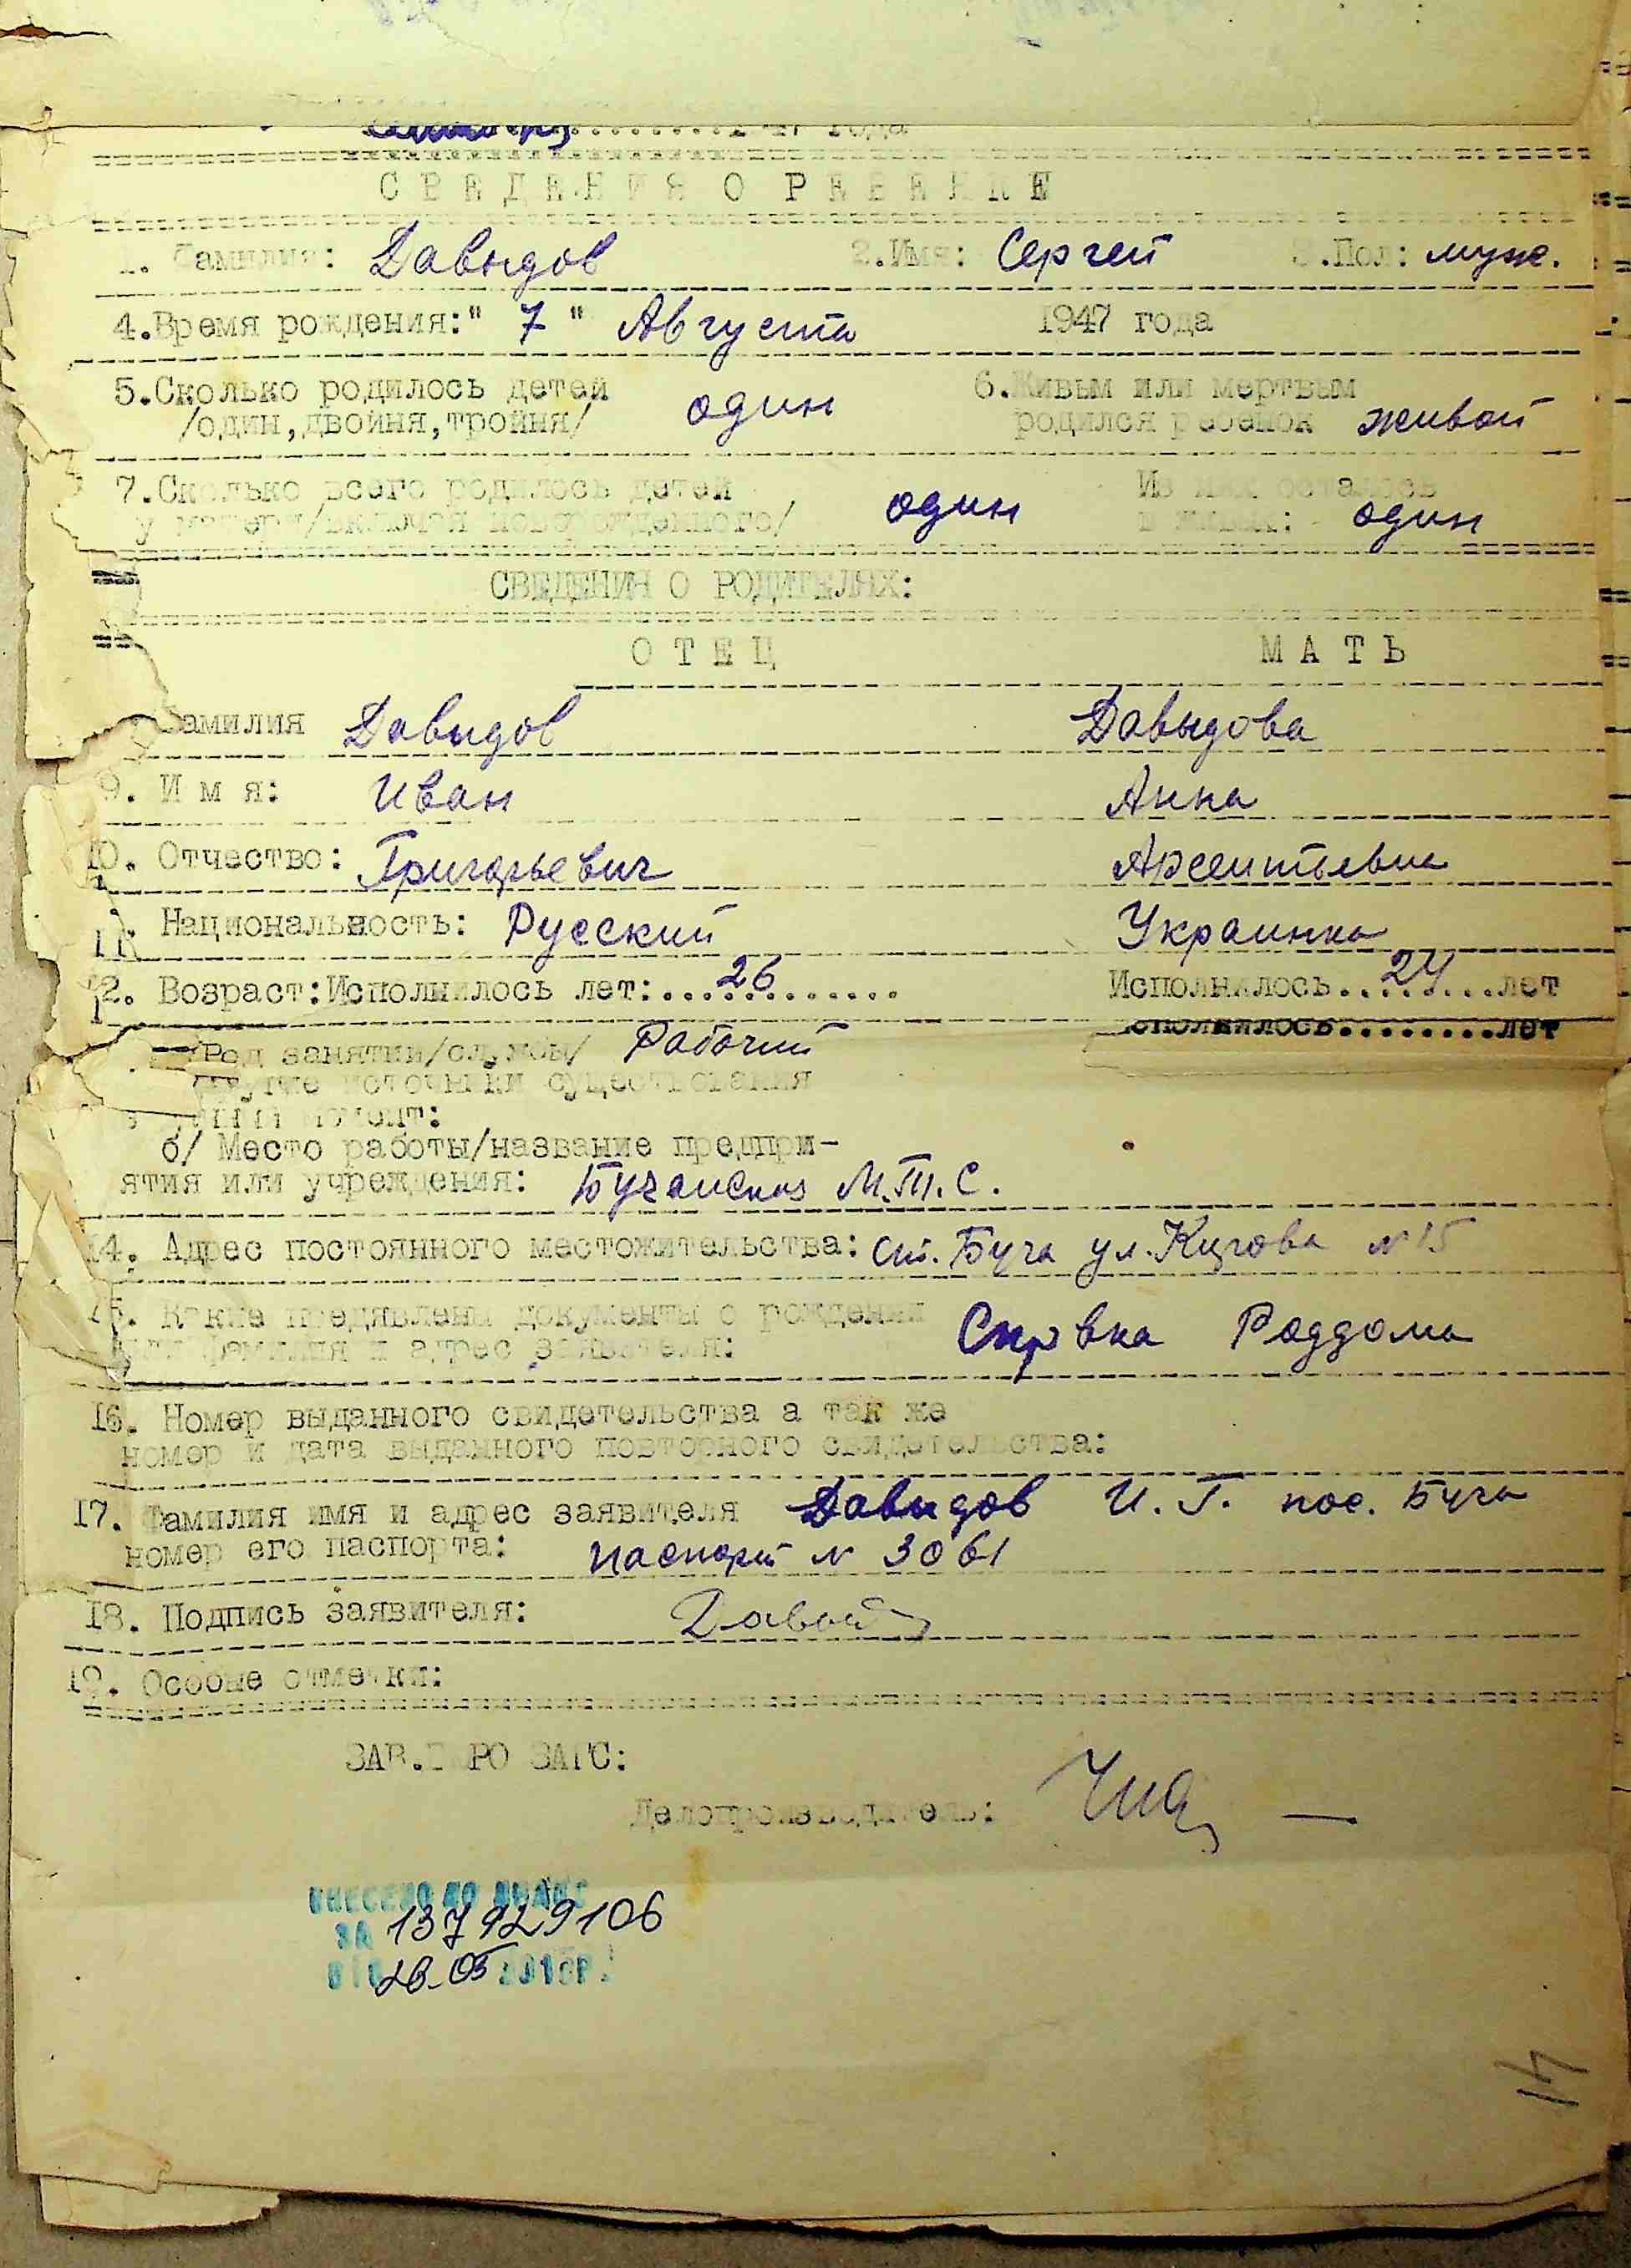 года
СВЕДЕНИЯ О РЕБЕНКЕ
1. Фамилия: Давыдов 2.Имя: Сергей 3.Пол: муж.
4.Время рождения:" 7 " Августа 1947 года
5.Сколько родилось детей 6.Живым или мертвым
/один,двойня,тройня/ один родился ребенок живой
7.Сколько всего родилось детей Из них осталось
у матери/включая новорожденного/ один в живых: один
СВЕДЕНИЯ О РОДИТЕЛЯХ:
ОТЕЦ МАТЬ
Фамилия Давыдов Давыдова
9. Имя: Иван Анна
10. Отчество: Григорьевич Арсентьевна
11. Национальность: Русский Украинка
12. Возраст:Исполнилось лет:....26......... Исполнилось..24....лет
сполнилось........лет
Род занятий/службы/ Рабочий
другие источники существования
момент:
б/ Место работы/название предпри-
ятия или учреждения: М.Т.С.
14. Адрес постоянного местожительства: ст. Буча ул. Кирова №15
15. Какие предявлены документы о рождении
фамилия и адрес заявителя: Спрвка Роддома
16. Номер выданного свидетельства а так же
номер и дата выданного повторного свидетельства:
17. Фамилия имя и адрес заявителя Давыдов И. Г. пос. Буча
номер его паспорта: паспорт № 3061
18. Подпись заявителя:
19. Особые отметки:
ЗАВ.БЮРО ЗАГС:
Делопроизводитель:
ВНЕСЕНО ДО ДРАЦС
ЗА 137929106
ВІД 28.05 201 Р.
14